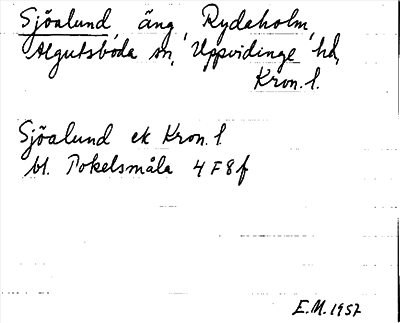 Sjöalund, äng, Rydaholm,
Algutsboda sn, Uppvidinge hd,
Kron. l.
Sjöalund ek Kron. l
bl. Pokelsmåla 4 F 8 f
E.M. 1957